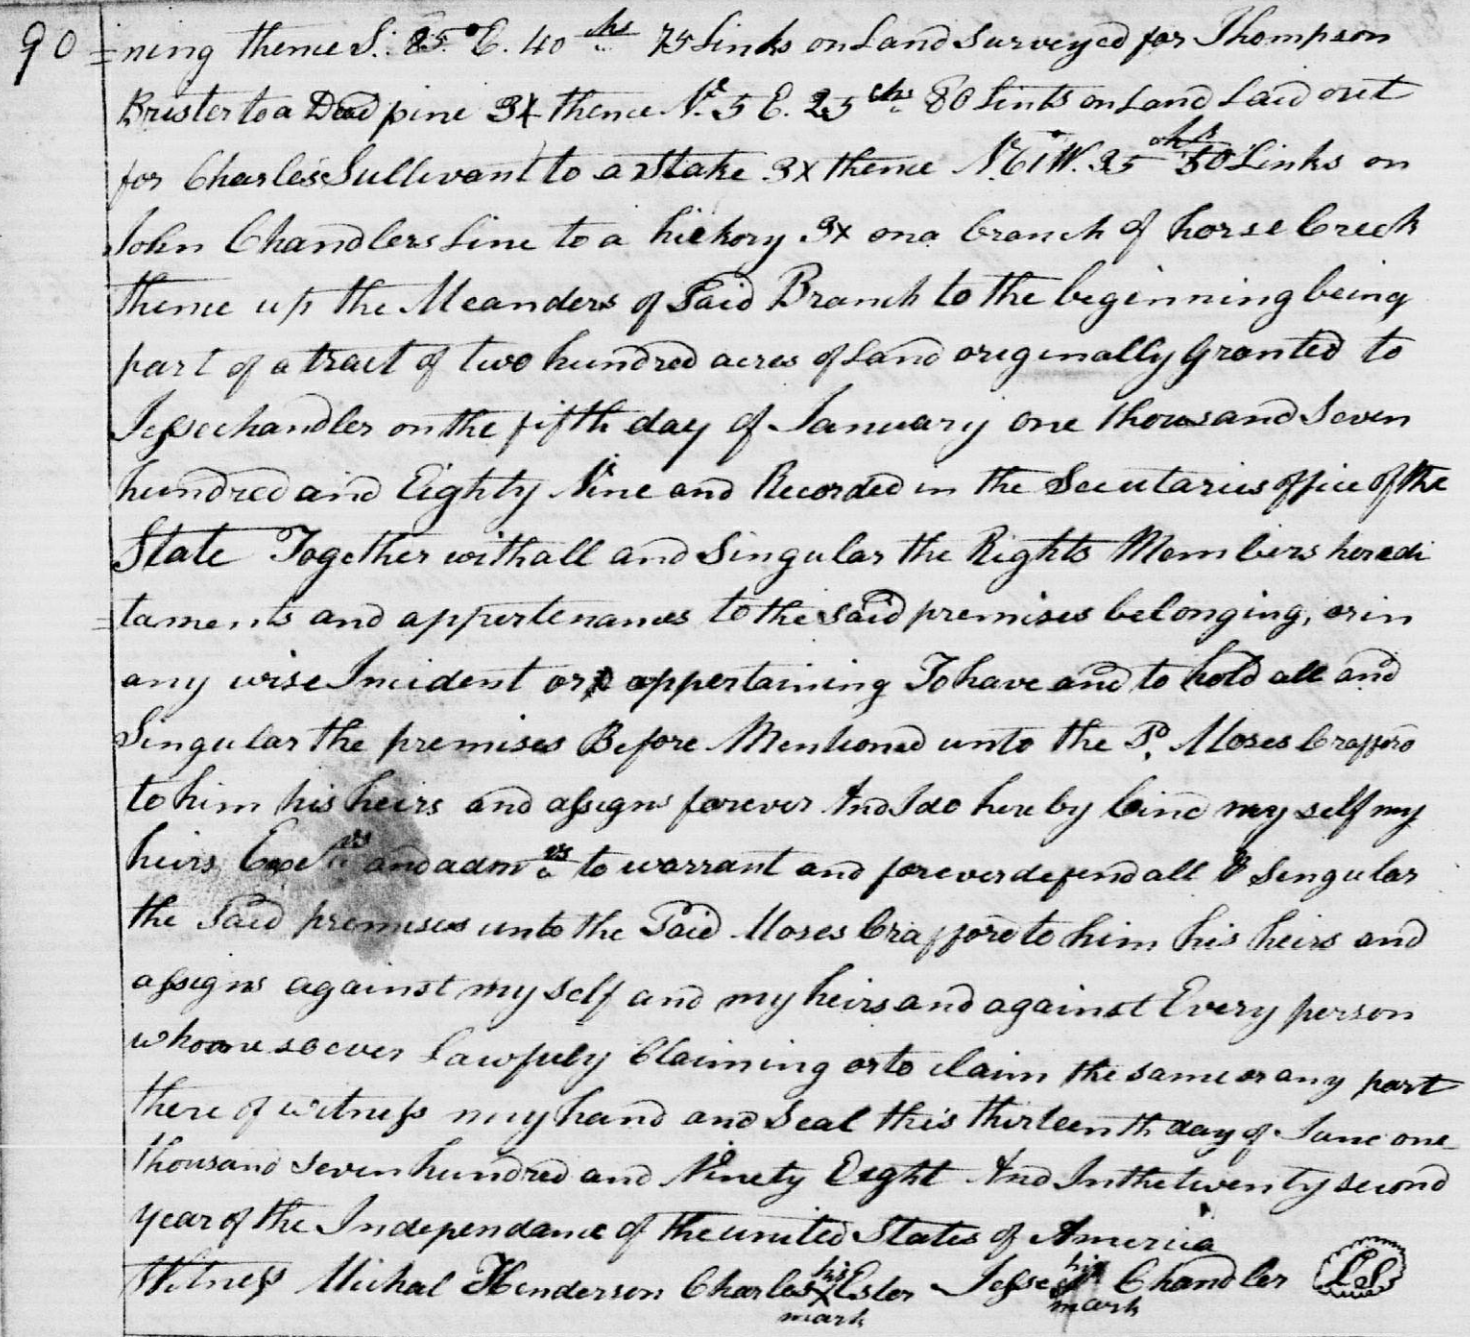 90 =ning thence S. 85° E. 40 chs 75 Links on Land Surveyed for Thompson
Brister to a Dead pine 3x thence N. 5 E. 25 chs 80 Links on Land Laid out
for Charles Sullivant to a Stake 3x thence N. 61 W. 35 chs 50 Links on
John Chandlers Line to a hickory 3x on a branch of horse Creek
thence up the Meanders of Said Branch to the beginning being
part of a tract of two hundred acres of Land originally Granted to
Jesse Chandler on the fifth day of January one thousand Seven
hundred and Eighty Nine and Recorded in the Secutaries office of the
State Together with all and Singular the Rights Members heredi
=taments and appertenances to the said premises belonging, or in
any wise Incident or appertaining To have and to hold all and
Singular the premises Before Mentioned unto the Sd. Moses Crafford
to him his heirs and assigns forever And I do here by bind my self my
heirs Exetrs and admrs to warrant and forever defend all & Singular
the Said premises unto the Said Moses Crafford to him his heirs and
assigns against my self and my heirs and against Every person
whome soever Lawfuly Claiming or to claim the same or any part
there of witness my hand and Seal this thirteenth day of June one
thousand Seven hundred and Ninety Eight And In the twenty second
year of the Independance of the united States of America
Witness Michal Henderson Charles his x mark Esler Jesse his mark Chandler LS